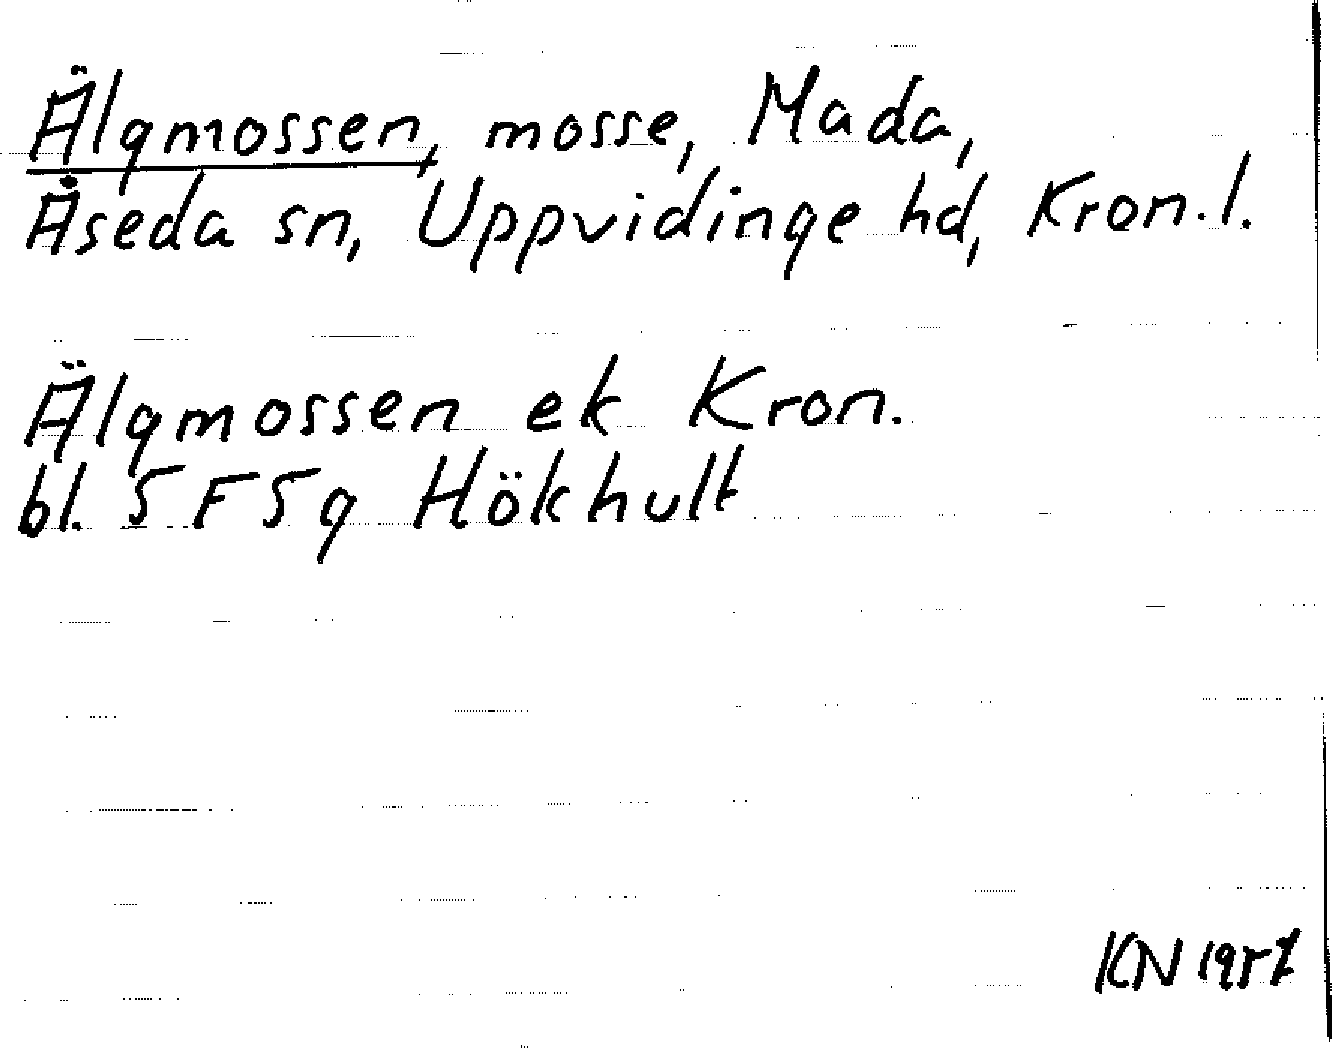 Älgmossen, mosse, Mada,
Åseda sn, Uppvidinge hd, Kron.l.
Älgmossen ek Kron.
bl. 5F5g Hökhult
KN 1957